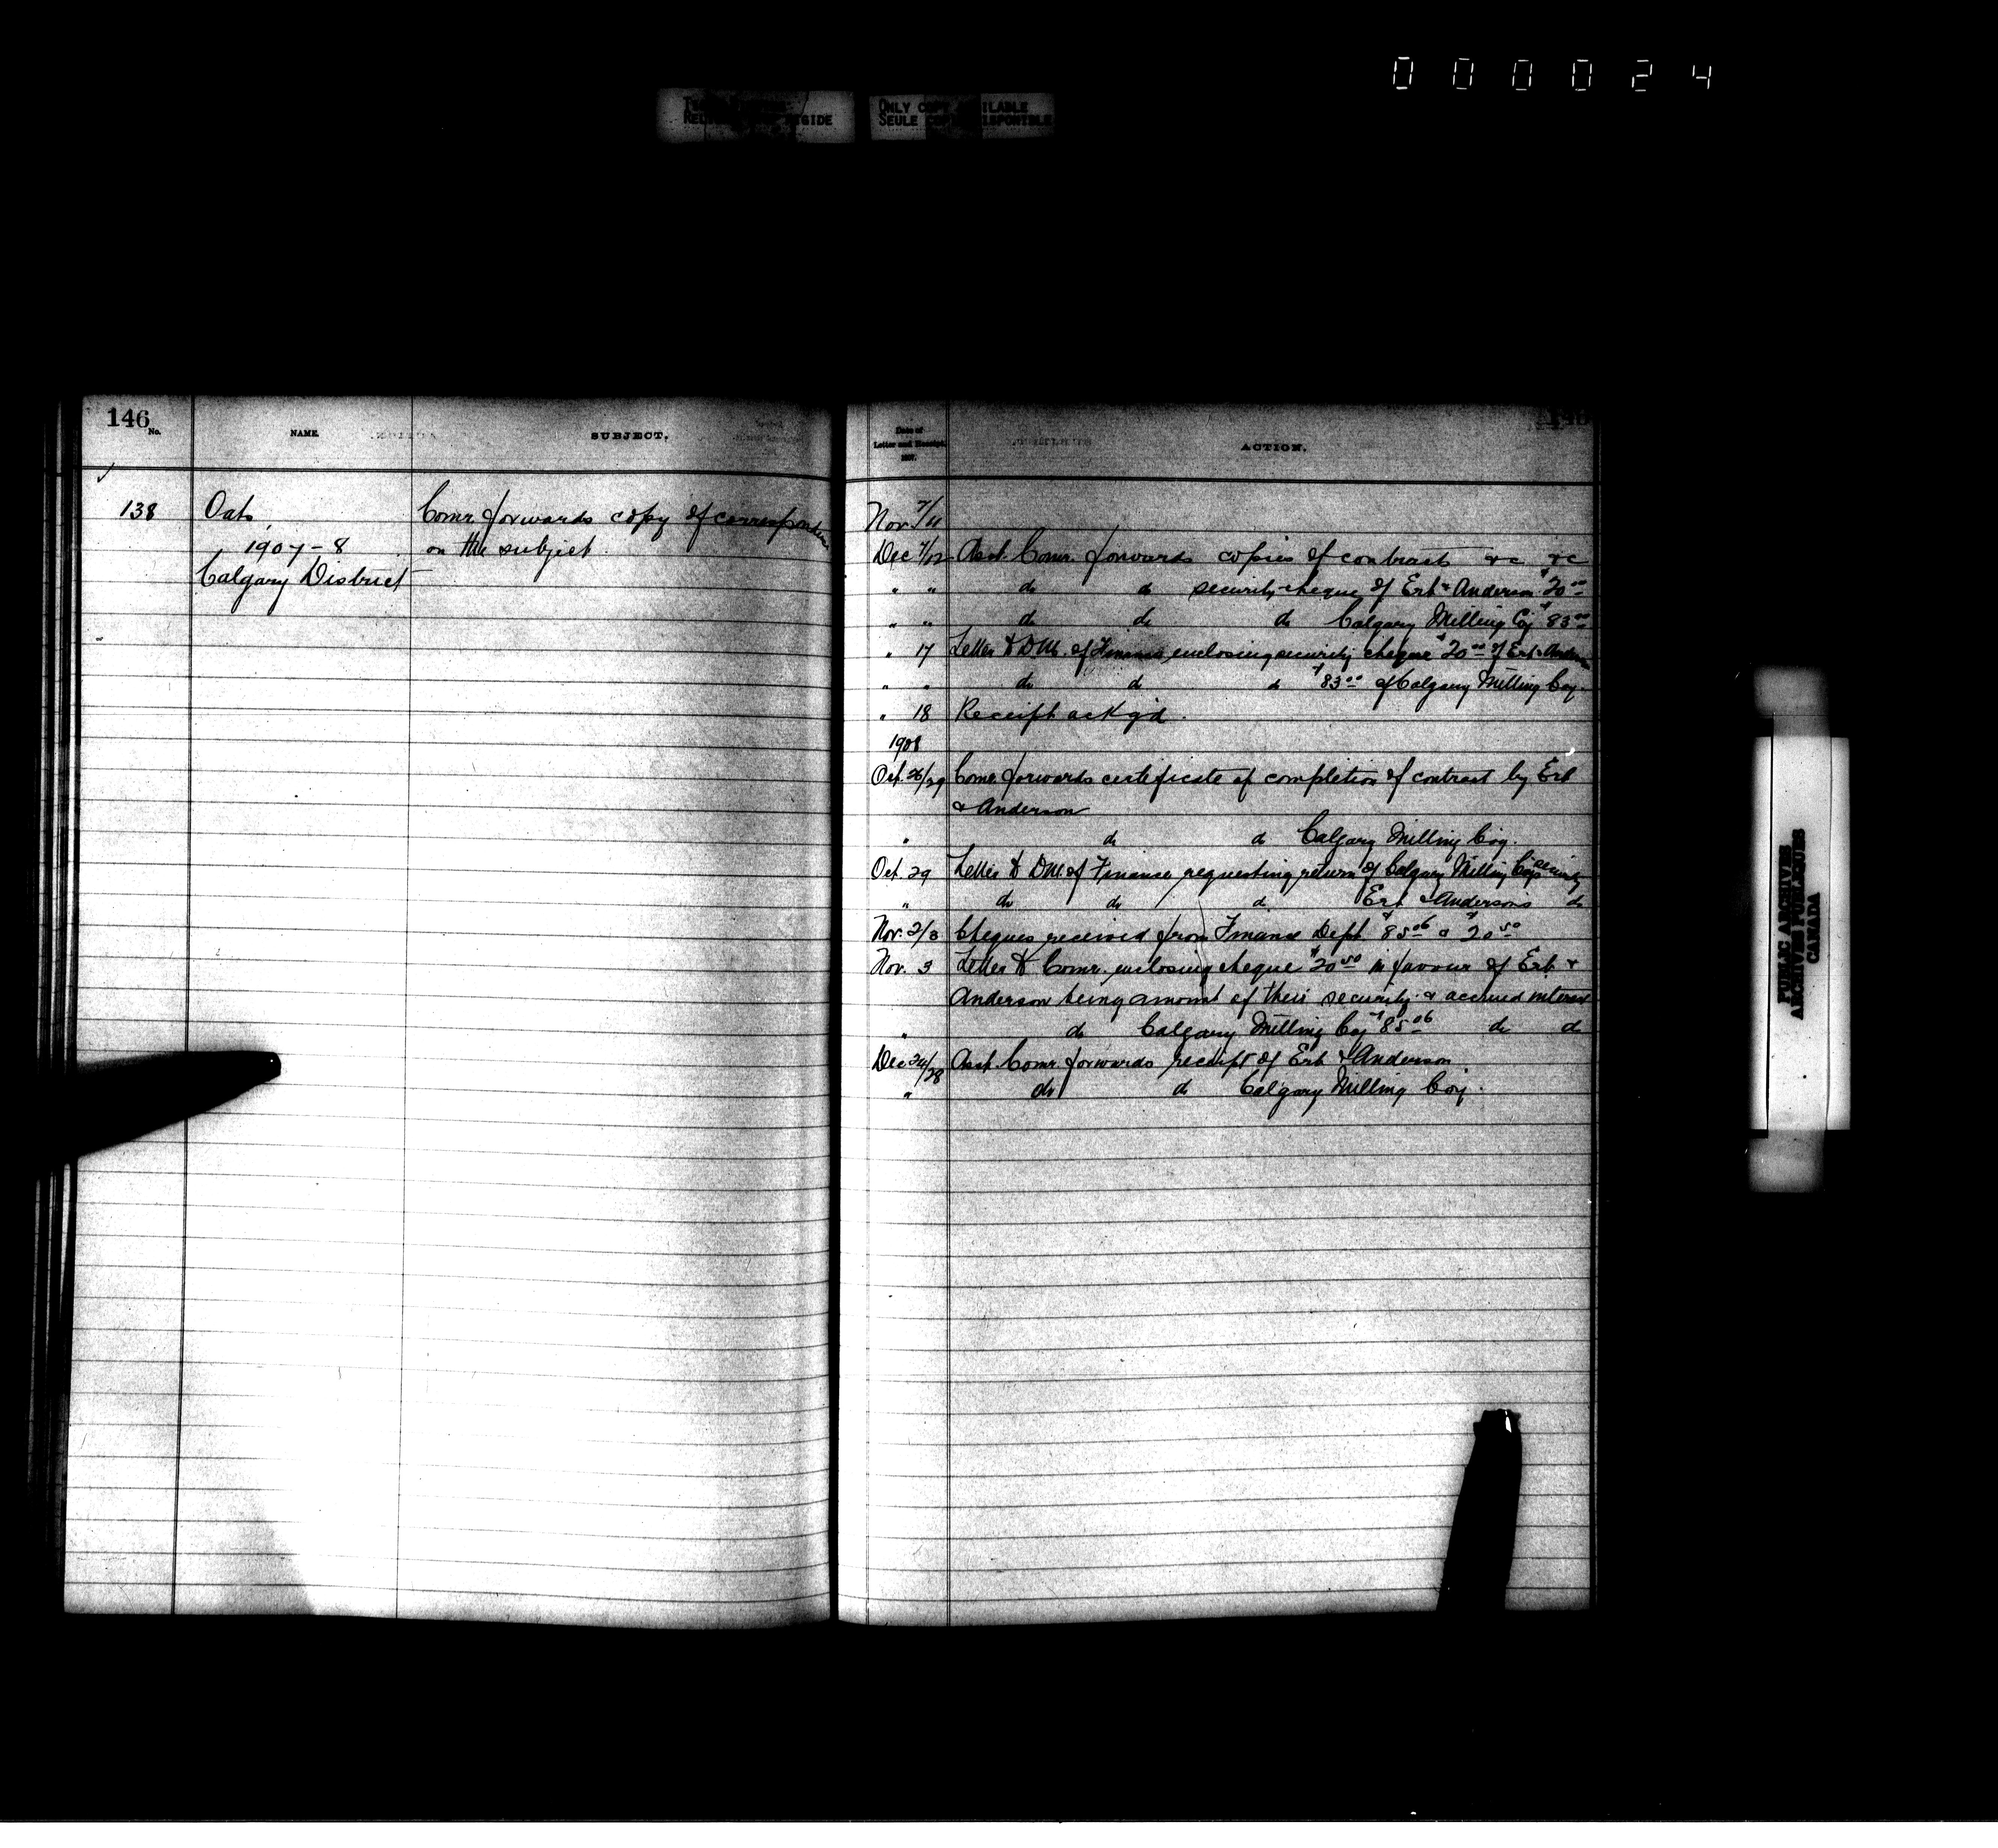 000024
ONLY COPY AVAILABLE
SEULE COPIE DISPONIBLE
146
No.
NAME.
SUBJECT.
Date of
Letter and Receipt.
1907.
ACTION.
138 Oats
1907-8
Calgary District
Comr. forwards copy of correspondence
on the subject.
Nov. 7/11
Dec 7/12 Asst. Comr. forwards copies of contract &c &c
" " do do security cheque of Erb & Anderson $20.00
" " do do do Calgary Milling Coy $83.00
" 17 Letter to D.M. of Finance enclosing security cheque $20.00 of Erb & Anderson
" " do do do $83.00 of Calgary Milling Coy.
" 18 Receipt ack'g'd.
1908
Oct. 26/29 Comr. forwards certificate of completion of contract by Erb
& Anderson
" do do Calgary Milling Coy.
Oct. 29 Letter to D.M. of Finance requesting return of Calgary Milling Coy's security
" do do do Erb & Andersons do
Nov. 2/3 Cheques received from Finance Dept. $85.06 & $20.50
Nov. 3 Letter to Comr. enclosing cheque $20.50 in favour of Erb &
Anderson being amount of their security & accrued interest
" do Calgary Milling Coy $85.06 do do
Dec 24/28 Asst. Comr. forwards receipt of Erb & Anderson
" do do Calgary Milling Coy.
PUBLIC ARCHIVES
ARCHIVES PUBLIQUES
CANADA